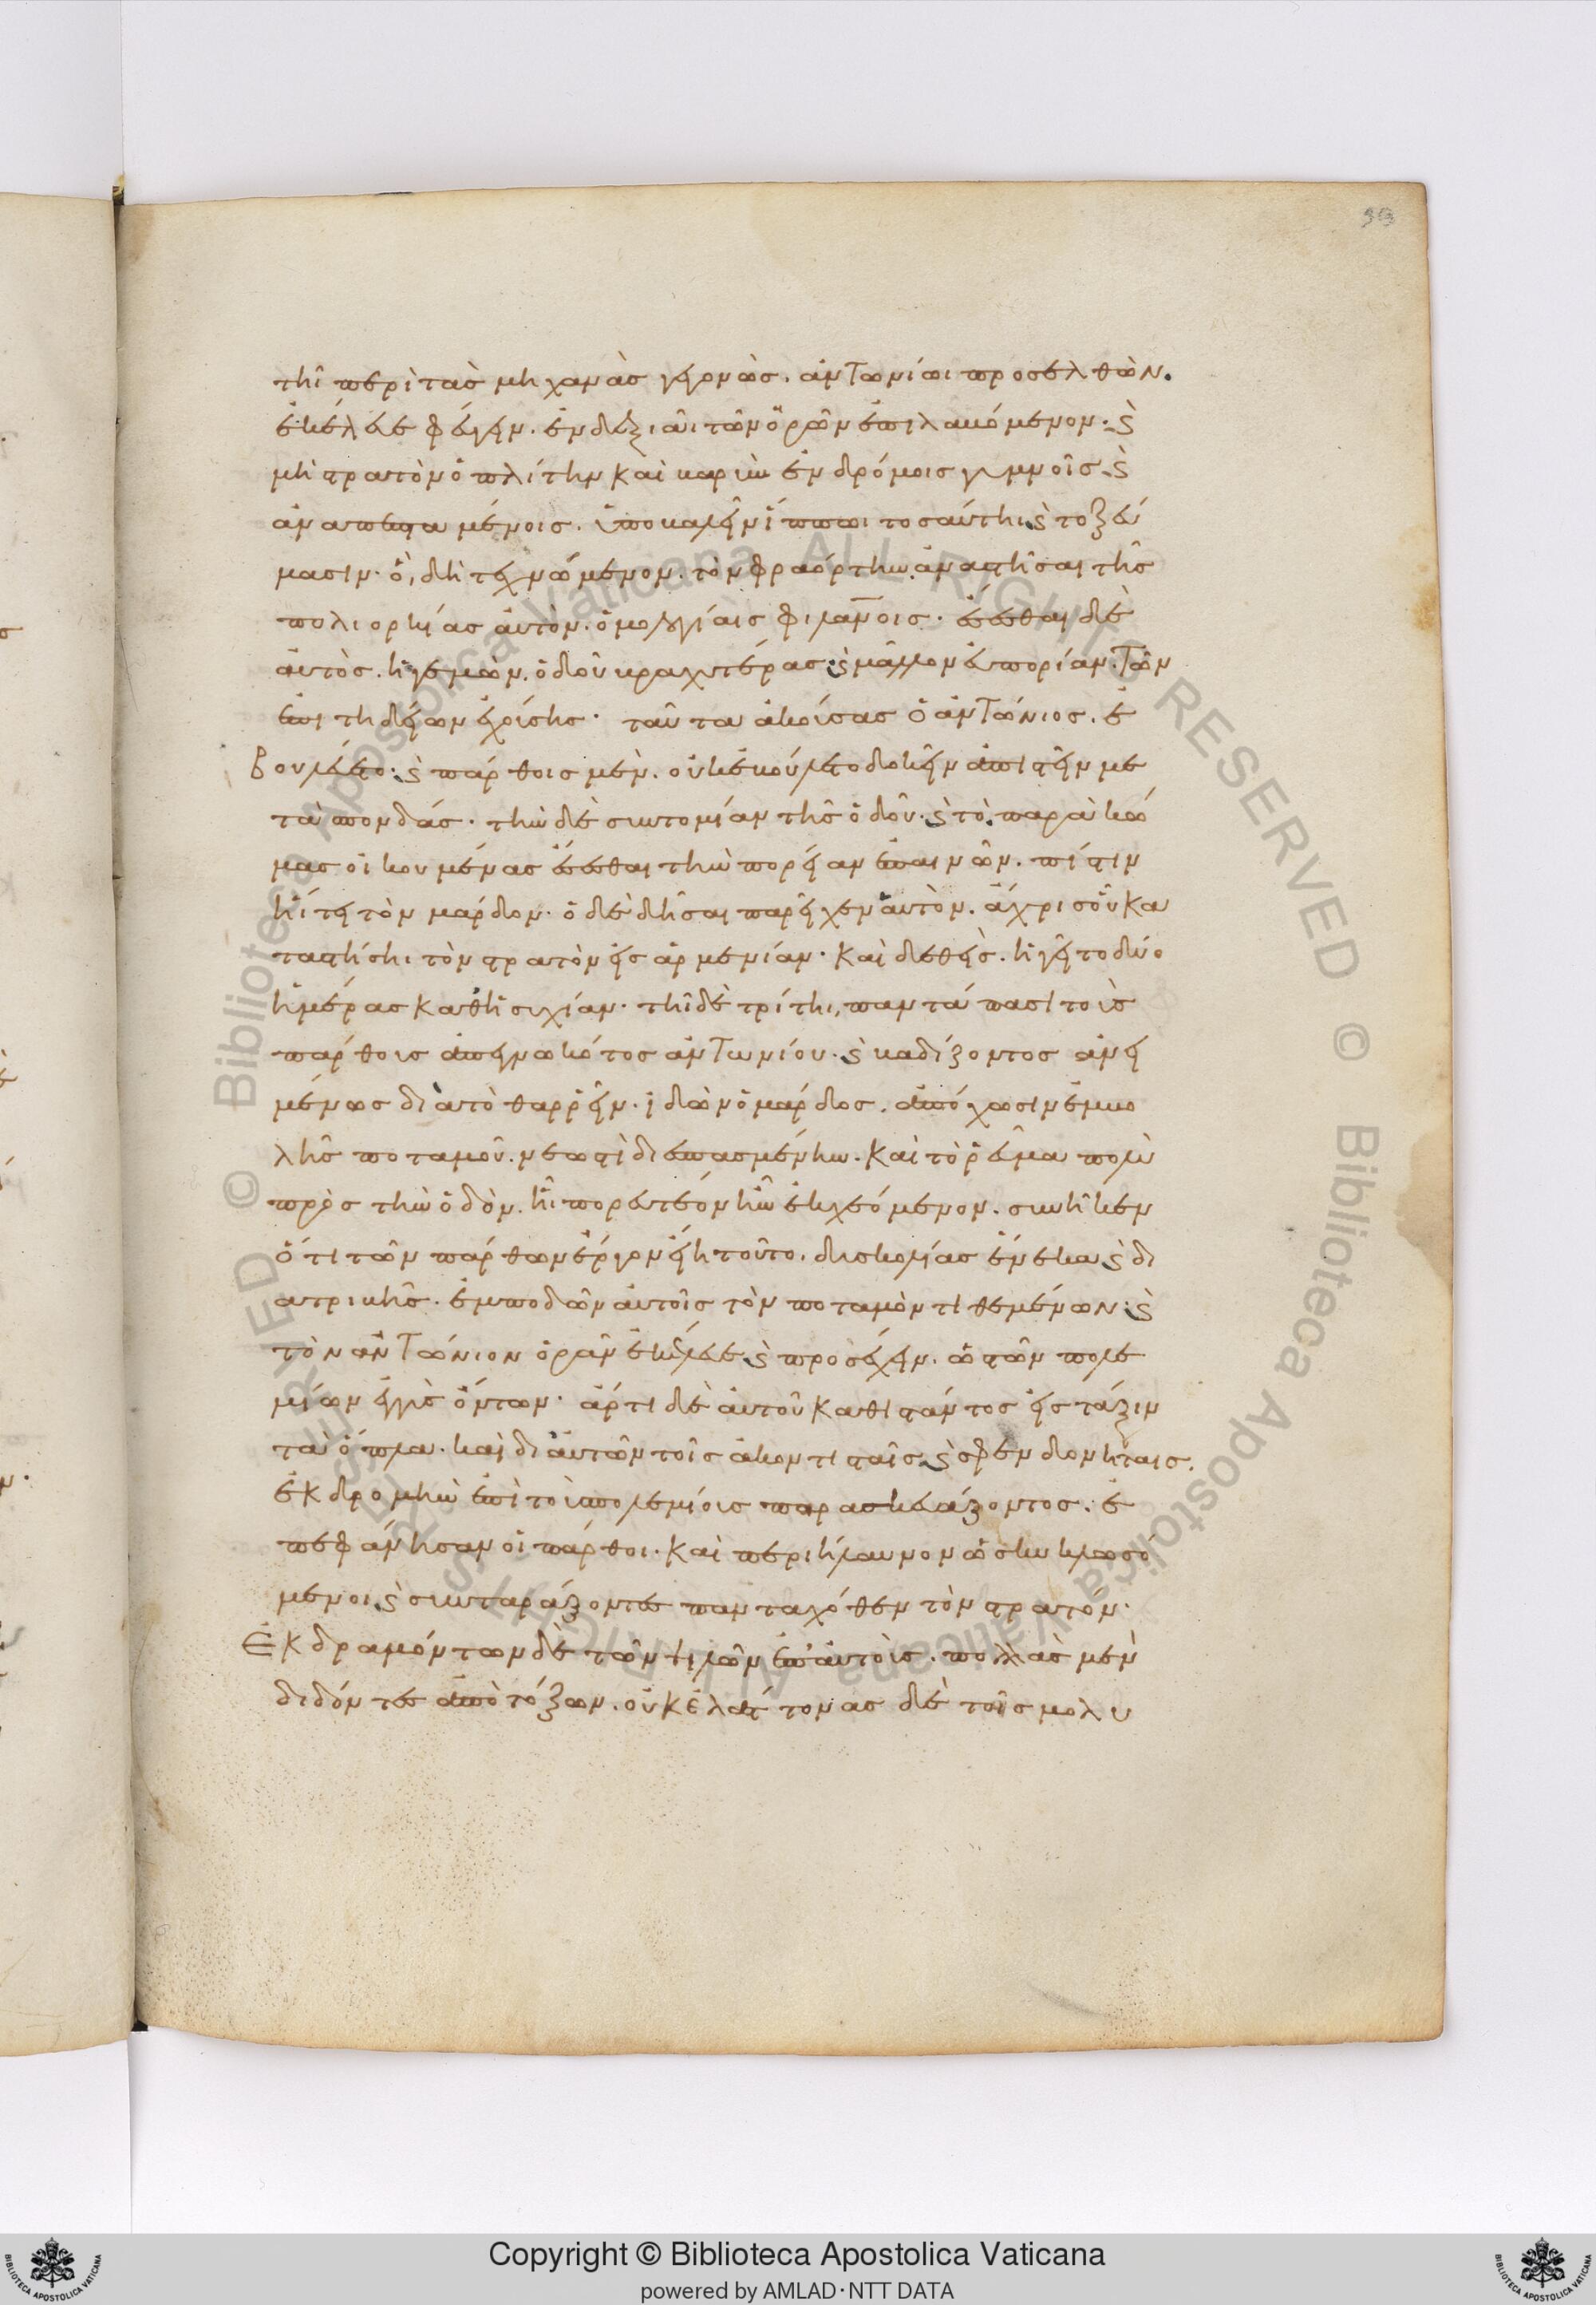 τῆι περὶ τὰς μηχανὰς γεγονὼς. ἀντωνίωι προσελθὼν.
ἐκέλευε φεύγειν. ἐν δεξιᾶι τῶν ὀρῶν ἐπιλαβόμενον· ϗ
μὴ στρατὸν ὁπλίτην καὶ βαρὺν ἐν δρόμοις γυμνοῖς ϗ
ἀναπεπταμένοις. ὑποβαλεῖν ἵππωι τοσαύτηι ϗ τοξεύ
μασιν· ὃ, δὴ τεχνώμενον. τὸν φραόρτην ἀναστῆσαι τῆς
πολιορκίας αὐτὸν. ὁμολογίαις φιλαν̅οις. ἔσεσθαι δὲ
αὐτὸς. ἡγεμὼν. ὁδοῦ βραχυτέρας· ϗ μᾶλλον εὐπορίαν. τῶν
ἐπιτηδείων ἐχούσης· ταῦτα ἀκούσας ὁ ἀντώνιος. ἐ
βουλεύετο· ϗ πάρθοις μὲν. οὐκ ἐβούλετο δοκεῖν ἀπιστεῖν με
τὰ σπονδάς· τὴν δὲ συντομίαν τῆς ὁδοῦ· ϗ τὸ. παρὰ κώ
μας οἰκουμένας ἔσεσθαι τὴν πορείαν ἐπαινῶν. πίστιν
ἤιτει τὸν μάρδον. ὁ δὲ δῆσαι παρεῖχεν αὐτὸν. ἄχρις οὗ κα
ταστήσηι τὸν στρατὸν εἰς ἀρμενίαν· καὶ δεθεὶς. ἡγεῖτο δύο
ἡμέρας καθ' ἡσυχίαν· τῆι δὲ τρίτηι, παντάπασι τοὺς
πάρθους ἀπεγνωκότος ἀντωνίου· ϗ βαδίζοντος ἀνει
μένως διὰ τὸ θαρρεῖν. ἰδὼν ὁ μάρδος. ἀπόχωσιν ἐμβο
λῆς ποταμοῦ. νεωστὶ διεσπασμένην. καὶ τὸ ῥεῦμα πολὺ
πρὸς τὴν ὁδὸν. ἧι πορευτέον ἦν ἐκχεόμενον. συνῆκεν
ὅτι τῶν πάρθων ἔργον εἴη τοῦτο. δυσκολίας ἕνεκα ϗ δι
ατριβῆς. ἐμποδὼν αὐτοῖς τὸν ποταμὸν τιθεμένων· ϗ
τὸν ἀντώνιον ὁρᾶν ἐκέλευε ϗ προσέχειν. ὡς τῶν πολε
μίων ἐγγὺς ὄντων· ἄρτι δὲ αὐτοῦ καθιστάντος εἰς τάξιν
τὰ ὅπλα. καὶ δι' αὐτῶν τοῖς ἀκοντισταῖς ϗ σφενδονήταις.
ἐκδρομὴν ἐπὶ τοὺς πολεμίους παρασκευάζοντος. ἐ
πεφάνησαν οἱ πάρθοι. καὶ περιήλαυνον ὡς κυκλωσό
μενοι ϗ συνταράξοντες πανταχόθεν τὸν στρατόν·
Ἐκδραμόντων δὲ τῶν ψιλῶν ἐπ' αὐτοὺς. πολλὰς μὲν
διδόντες ἀπὸ τόξων. οὐκ ἐλάττονας δὲ τοῖς μολυ